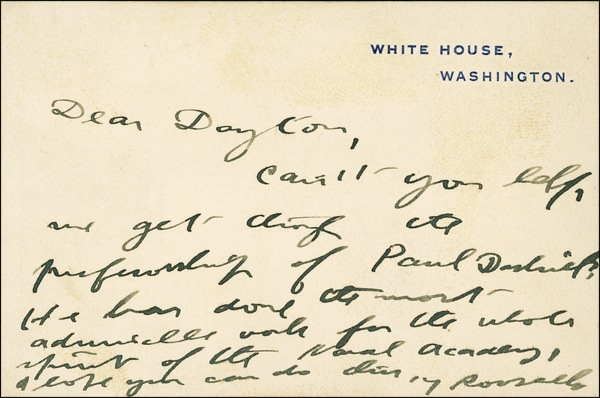 WHITE HOUSE,
WASHINGTON.
Dear Dayton,
Can't you help
me get through the
professorship of Paul Dashiell?
He has done the most
admirable work for the whole
spirit of the Naval Academy.
I hope you can do this. T Roosevelt